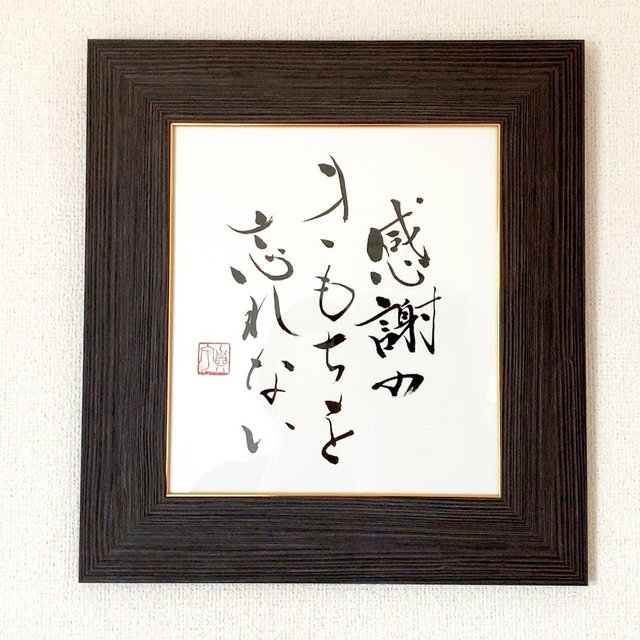 感謝の
きもちを
忘れない